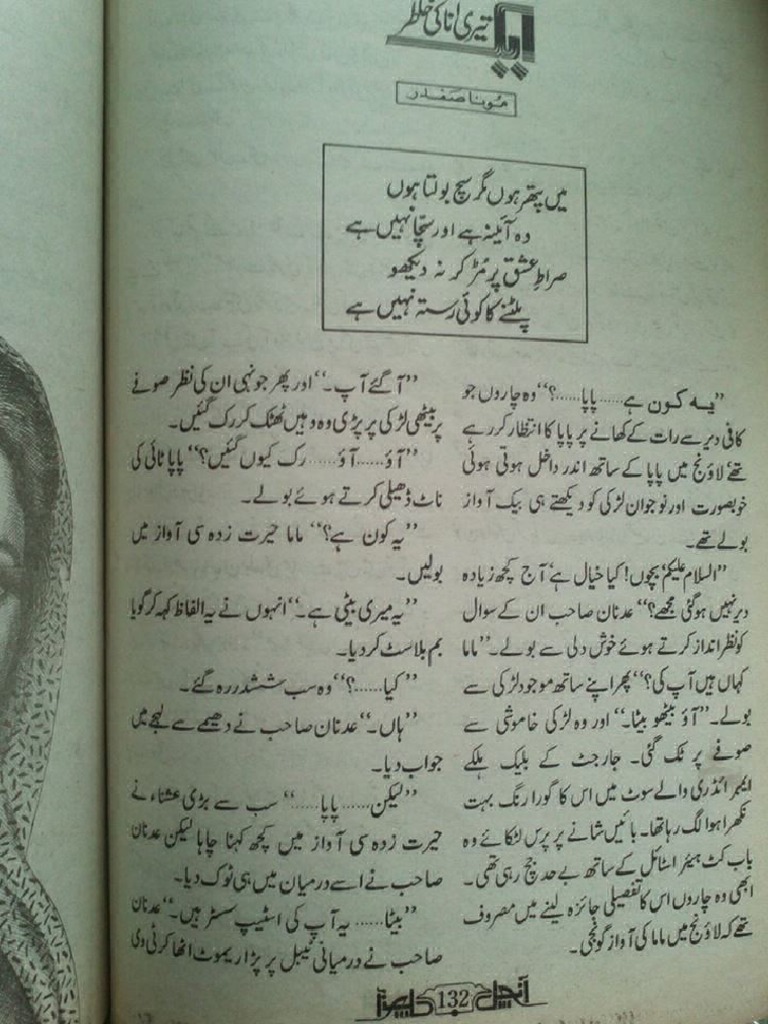 اپیا تیری انا کی خاطر
مونا صفدر
میں پتھر ہوں مگر سچ بولتا ہوں
وہ آئینہ ہے اور سچا نہیں ہے
صراطِ عشق پر مڑ کر نہ دیکھو
پلٹنے کا کوئی رستہ نہیں ہے
”یہ کون ہے...... پاپا......؟“ وہ چاروں جو
کافی دیر سے رات کے کھانے پر پاپا کا انتظار کر رہے
تھے‘ لاؤنج میں پاپا کے ساتھ اندر داخل ہوتی ہوئی
خوبصورت اور نوجوان لڑکی کو دیکھتے ہی بیک آواز
بولے تھے۔
”السلام علیکم بچوں! کیا خیال ہے‘ آج کچھ زیادہ
دیر نہیں ہوگئی مجھے؟“ عدنان صاحب ان کے سوال
کو نظر انداز کرتے ہوئے خوش دلی سے بولے۔ ”ماما
کہاں ہیں آپ کی؟“ پھر اپنے ساتھ موجود لڑکی سے
بولے۔ ”آؤ بیٹھو بیٹا۔“ اور وہ لڑکی خاموشی سے
صوفے پر ٹک گئی۔ جارجٹ کے بلیک ہلکے
ایمبرائڈری والے سوٹ میں اس کا گورا رنگ بہت
نکھرا ہوا لگ رہا تھا۔ بائیں شانے پر پرس لٹکائے وہ
باب کٹ ہیئر اسٹائل کے ساتھ بے حد جچ رہی تھی۔
ابھی وہ چاروں اس کا تفصیلی جائزہ لینے میں مصروف
تھے کہ لاؤنج میں ماما کی آواز گونجی۔
”آگئے آپ۔“ اور پھر جونہی ان کی نظر صوفے
پر بیٹھی لڑکی پر پڑی وہ وہیں ٹھٹک کر رک گئیں۔
”آؤ...... آؤ...... رک کیوں گئیں؟“ پاپا ٹائی کی
ناٹ ڈھیلی کرتے ہوئے بولے۔
”یہ کون ہے؟“ ماما حیرت زدہ سی آواز میں
بولیں۔
”یہ میری بیٹی ہے۔“ انہوں نے یہ الفاظ کہہ کر گویا
بم بلاسٹ کر دیا۔
”کیا......؟“ وہ سب ششدر رہ گئے۔
”ہاں۔“ عدنان صاحب نے دھیمے سے لہجے میں
جواب دیا۔
”لیکن...... پاپا......“ سب سے بڑی عشناء نے
حیرت زدہ سی آواز میں کچھ کہنا چاہا لیکن عدنان
صاحب نے اسے درمیان میں ہی ٹوک دیا۔
”بیٹا...... یہ آپ کی اسٹیپ سسٹر ہیں۔“ عدنان
صاحب نے درمیانی ٹیبل پر پڑا ریموٹ اٹھا کر ٹی وی
آنچل 132